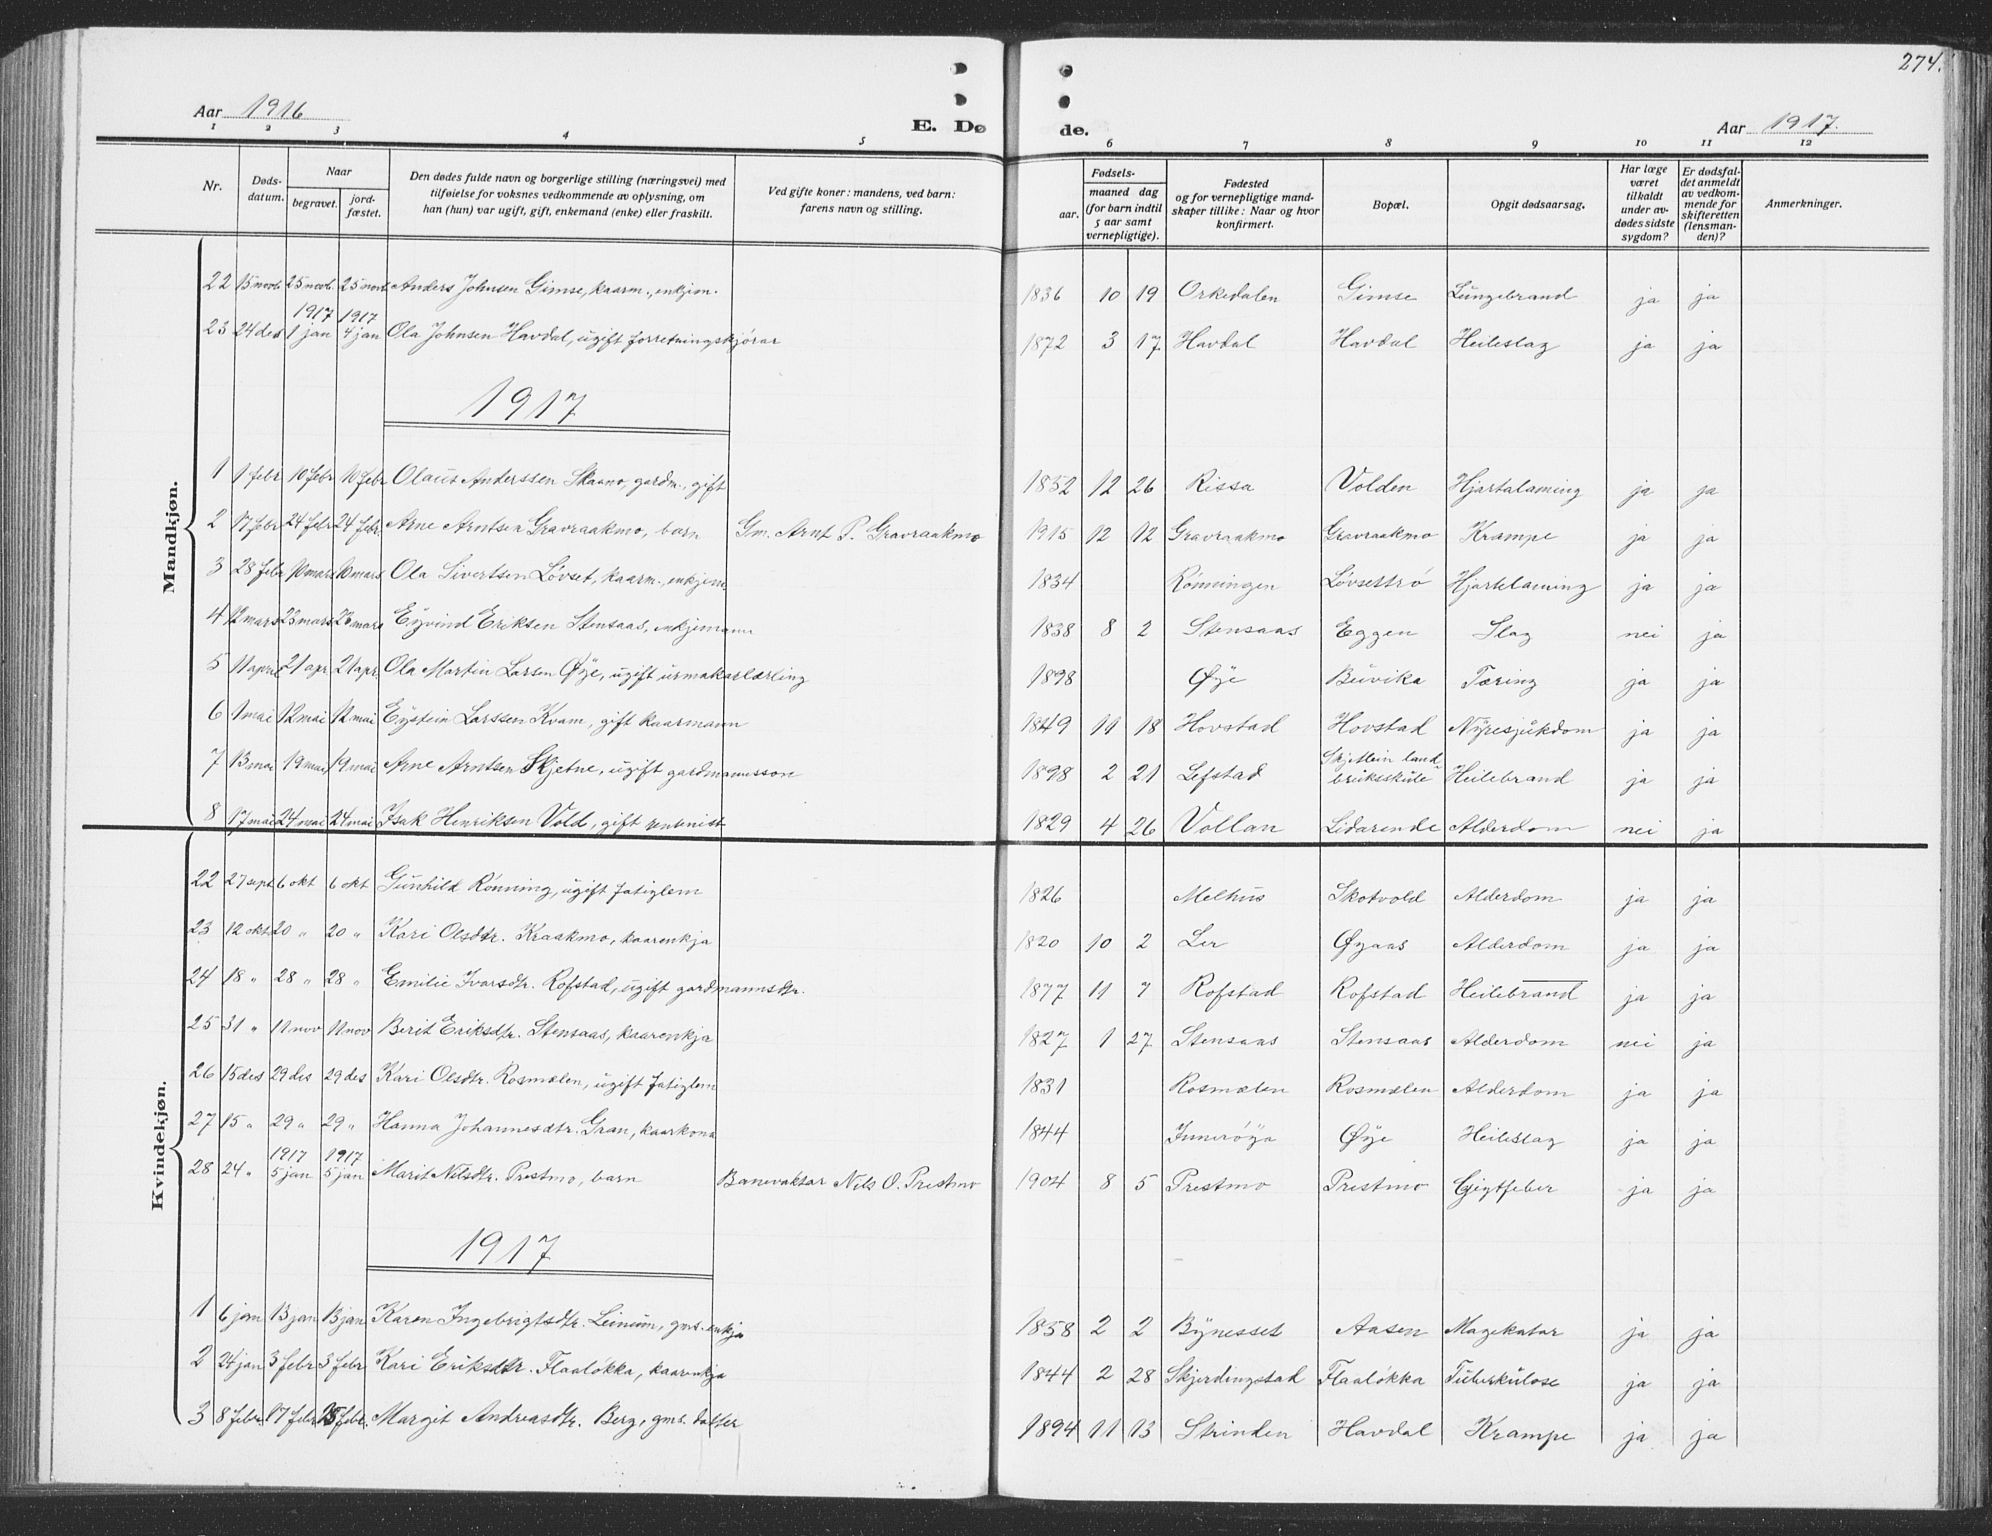 274.
Aar 1916 E. Dø de. Aar 1917.
1 2 3 4 5 6 7 8 9 10 11 12
Nr. Døds-datum. Naar begravet. jord-fæstet. Den dødes fulde navn og borgerlige stilling (næringsvei) med tilføielse for voksnes vedkommende av oplysning, om han (hun) var ugift, gift, enkemand (enke) eller fraskilt. Ved gifte koner: mandens, ved barn: farens navn og stilling. Fødsels- aar. maaned dag (for barn indtil 5 aar samt vernepligtige). Fødested og for vernepligtige mand-skaper tillike: Naar og hvor konfirmert. Bopæl. Opgit dødsaarsag. Har læge været tilkaldt under av-dødes sidste sygdom? Er dødsfal-det anmeldt av vedkom-mende for skifteretten (lensman-den)? Anmerkninger.
Mandkjøn.
22 15 novb. 25 novb. 25 novb Anders Johnsen Gimse, kaarm., enkjem. 1836 10 19 Orkedalen Gimse Lungebrand ja ja
23 24 des 1917 1 jan 1917 4 jan Ola Johnsen Havdal, ugift forretningskjørar 1872 3 17 Havdal Havdal Heileslag ja ja
1917
1 1 febr 10 febr 10 febr Olaus Anderssen Skaano, gardm., gift 1852 12 26 Rissa Volden Hjartalaming ja ja
2 17 febr 24 febr 24 febr. Arne Arntsen Gravraakmo, barn Gm. Arnt P. Gravraakmo 1915 12 12 Gravraakmo Gravraakmo Krampe ja ja
3 28 febr 10 mars 10 mars Ola Sivertsen Løvset, kaarm., enkjem. 1834 Rønningen Løvsettrø Hjartelaming ja ja
4 12 mars 23 mars 23 mars Eyvind Eriksen Stensaas, enkjemann 1838 8 2 Stensaas Eggen Slag nei ja
5 11 april 21 apr. 21 apr. Ola Martin Larsen Øye, ugift urmakarlærling 1898 Øye Buvika Tæring ja ja
6 1 mai 12 mai 12 mai Eystein Larssen Kvam, gift kaarmann 1849 11 18 Hovstad Hovstad Nyresjukdom ja ja
7 13 mai 19 mai 19 mai Arne Arntsen Skjetne, ugift gardmannsson 1898 2 21 Lefstad Skjetlein land-bruksskule Heilebrand ja ja
8 17 mai 24 mai 24 mai Isak Henriksen Vold, gift rentenist 1829 4 26 Vollan Lidarende Alderdom nei ja
Kvindekjøn.
22 27 sept 6 okt 6 okt Gunhild Rønning, ugift fatiglem 1826 Melhus Skotvold Alderdom ja ja
23 12 okt 20 „ 20 „ Kari Olsdtr. Kraakmo, kaarenkja 1820 10 2 Ler Øyaas Alderdom ja ja
24 18 „ 28 „ 28 „ Emilie Ivarsdtr. Rofstad, ugift gardmannsdtr. 1877 11 7 Rofstad Rofstad Heilebrand ja ja
25 31 „ 11 nov 11 nov Berit Eriksdtr. Stensaas, kaarenkja 1827 1 27 Stensaas Stensaas Alderdom nei ja
26 15 des 29 des 29 des Kari Olsdtr. Rosmælen, ugift fatiglem 1831 Rosmælen Rosmælen Alderdom ja ja
27 15 „ 29 „ 29 „ Hanna Johannesdtr. Gran, kaarkona 1844 Inderøya Øye Heileslag ja ja
28 24 „ 1917 5 jan 1917 5 jan Marit Nilsdtr. Prestmo, barn Banevaktar Nils O. Prestmo 1904 8 5 Prestmo Prestmo Gigtfeber ja ja
1917
1 6 jan 13 jan 13 jan Karen Ingebrigtsdtr. Leinum, gms. enkja 1858 2 2 Bynesset Aasen Magekatar ja ja
2 24 jan 3 febr 3 febr Kari Eriksdtr. Flaaløkka, kaarenkja 1844 2 28 Skjerdingstad Flaaløkka Tuberkulose ja ja
3 8 febr 17 febr febr. Margit Andreasdtr. Berg, gms. datter 1894 11 13 Strinden Havdal Krampe ja ja